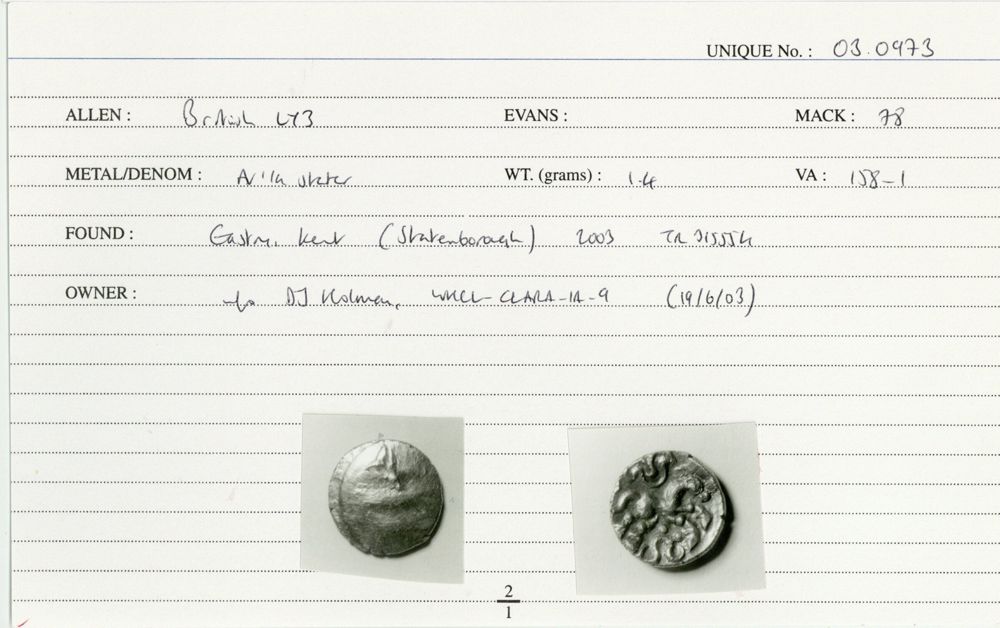 UNIQUE No. : 03.0973
ALLEN : British LY3 EVANS : MACK : 78
METAL/DENOM : AV 1/4 stater WT. (grams) : 1.4 VA : 158-1
FOUND : Eastry, Kent (Statenborough) 2003 TR 3155
OWNER : DJ Holman, (19/6/03)
2
1